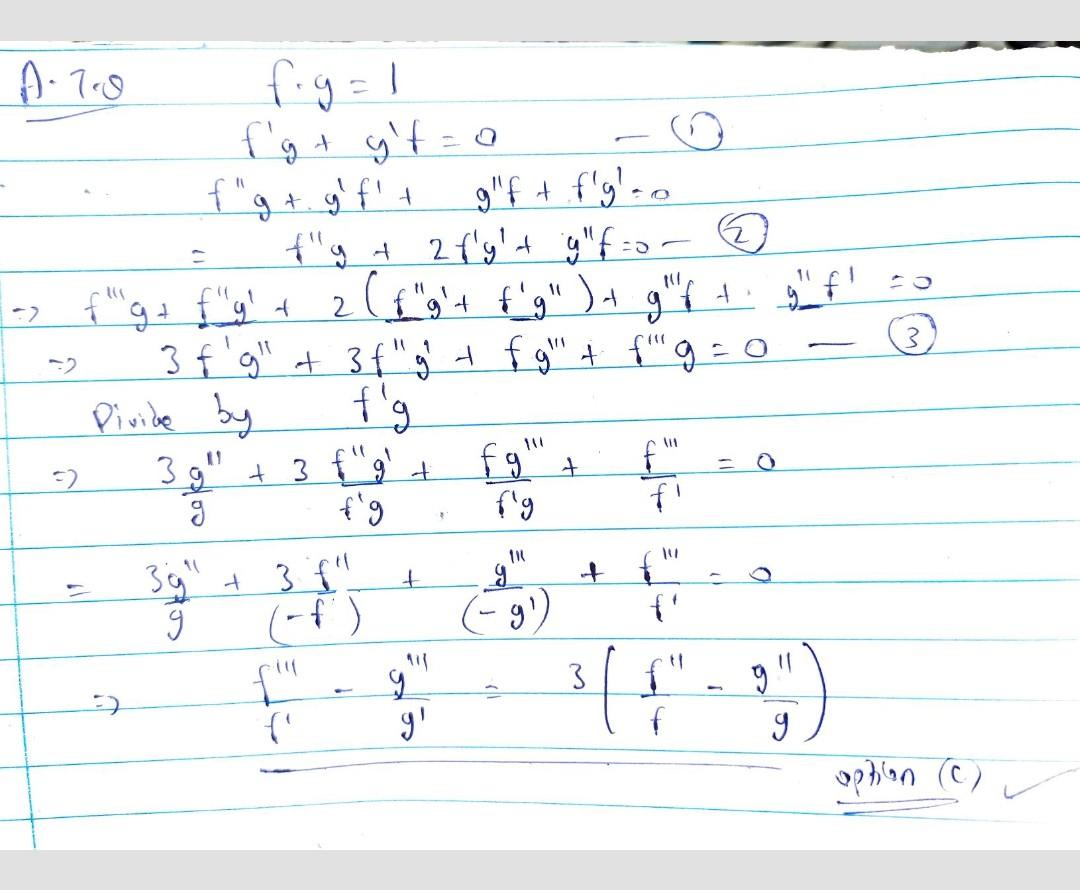 A. 7.0 f.g = 1
f'g + g'f = 0 — ①
f''g + g'f' + g''f + f'g' = 0
= f''g + 2f'g' + g''f = 0 — ②
=> f'''g + f''g' + 2(f''g' + f'g'') + g'''f + g''f' = 0
=> 3f'g'' + 3f''g' + fg''' + f'''g = 0 — ③
Divide by f'g
=> 3g''/g + 3 f''g'/f'g + fg'''/f'g + f'''/f' = 0
= 3g''/g + 3f''/(-f) + g'''/(-g') + f'''/f' = 0
=> f'''/f' - g'''/g' = 3(f''/f - g''/g)
option (C) ✓